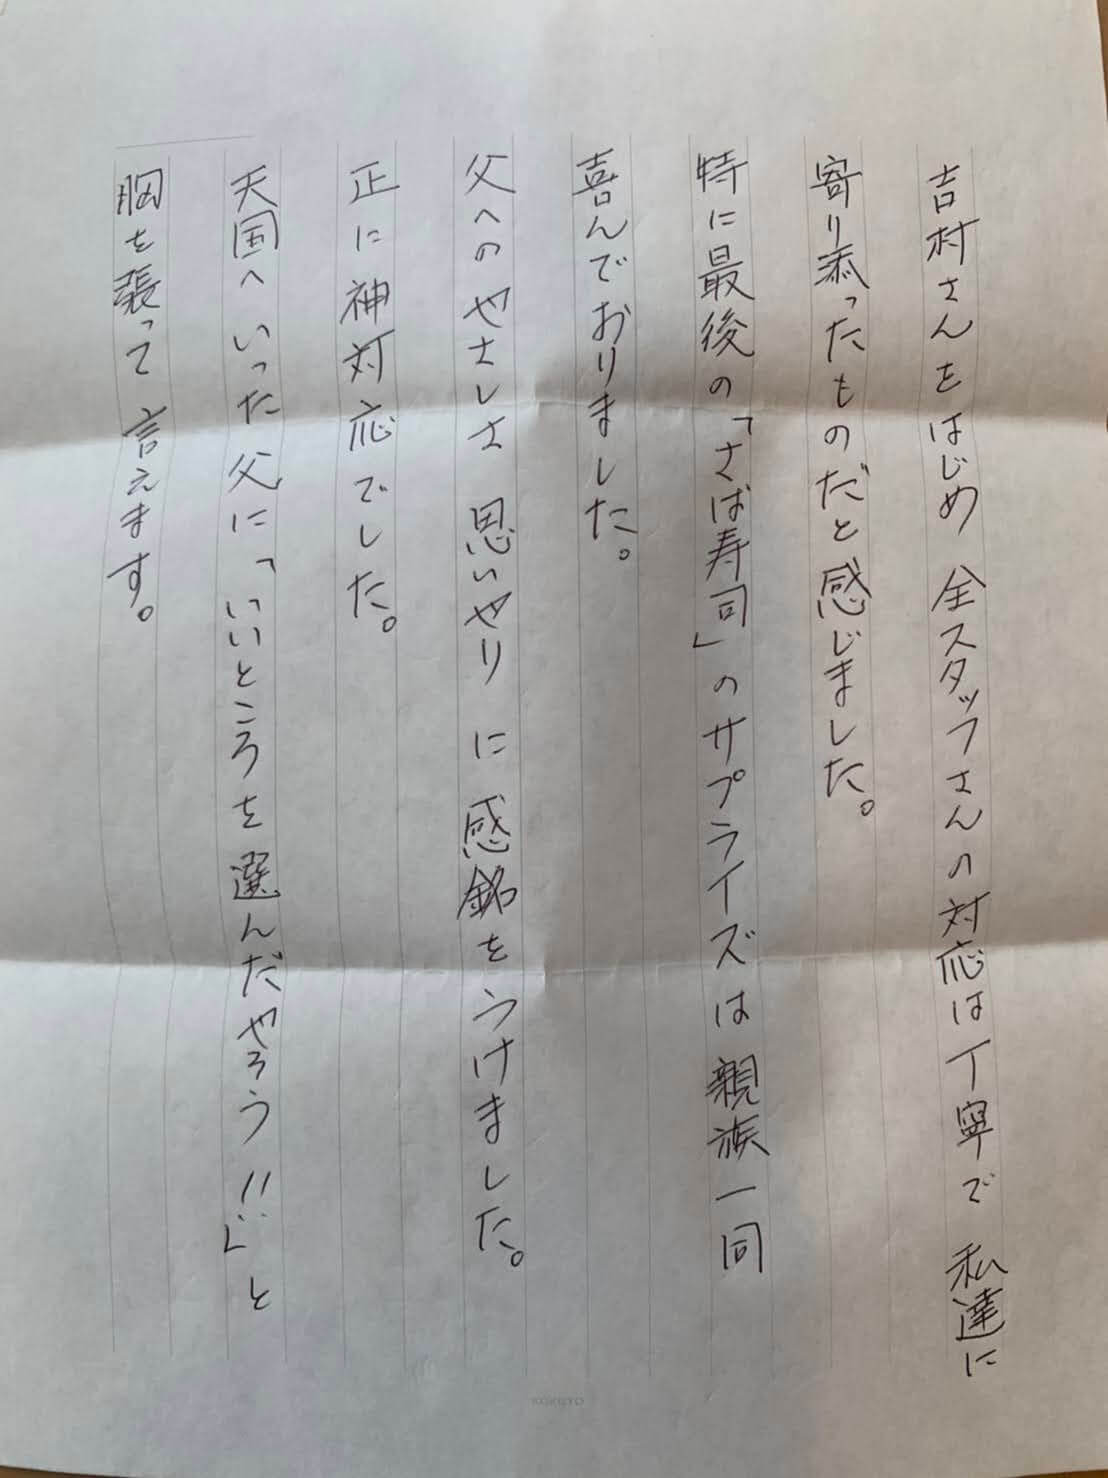 吉村さんをはじめ 全スタッフさんの対応は丁寧で 私達に
寄り添ったものだと感じました。
特に最後の「さば寿司」のサプライズは親族一同
喜んでおりました。
父へのやさしさ 思いやりに感銘をうけました。
正に神対応でした。
天国へいった父に「いいところを選んだやろう!!」と
胸を張って言えます。
KOKUYO